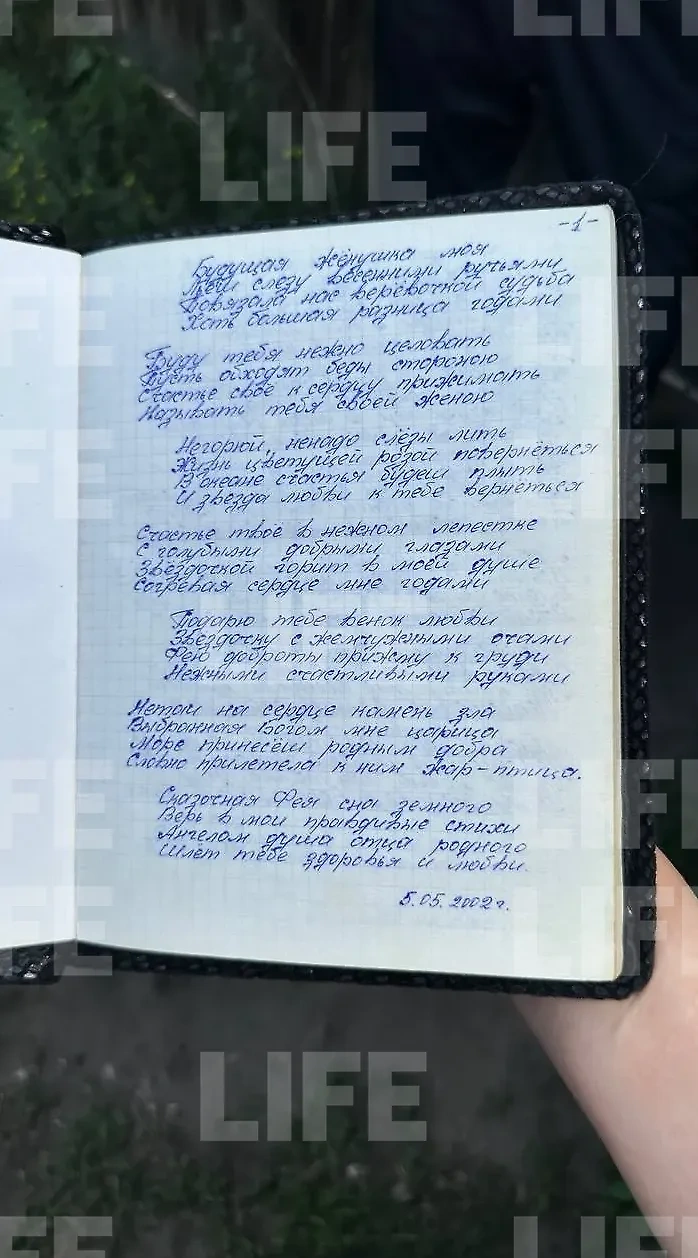 -1-
Будущая жёнушка моя
Льёш слезу весенними ручьями
Повязала нас верёвочкой судьба
Хоть большая разница годами
Буду тебя нежно целовать
Пусть обходят беды стороною
Счастье своё к сердцу прижимать
Называть тебя своей женою
Негорюй, ненадо слёзы лить
Жизнь цветущей розой повернёться
В океане счастья будеш плыть
И звезда любви к тебе вернёться
Счастье твоё в нежном лепестке
С голубыми добрыми глазами
Звёздочкой горит в моей душе
Согревая сердце мне годами
Подарю тебе венок любви
Звёздочку с жемчужными очами
Фею доброты прижму к груди
Нежными счастливыми руками
Нетаи на сердце камень зла
Выбранная Богом мне царица
Море принесёш родным добра
Словно прилетела к ним жар-птица.
Сказочная Фея сна земного
Верь в мои правдивые стихи
Ангелом душа отца родного
Шлёт тебе здоровья и любви.
5.05.2002 г.
LIFE